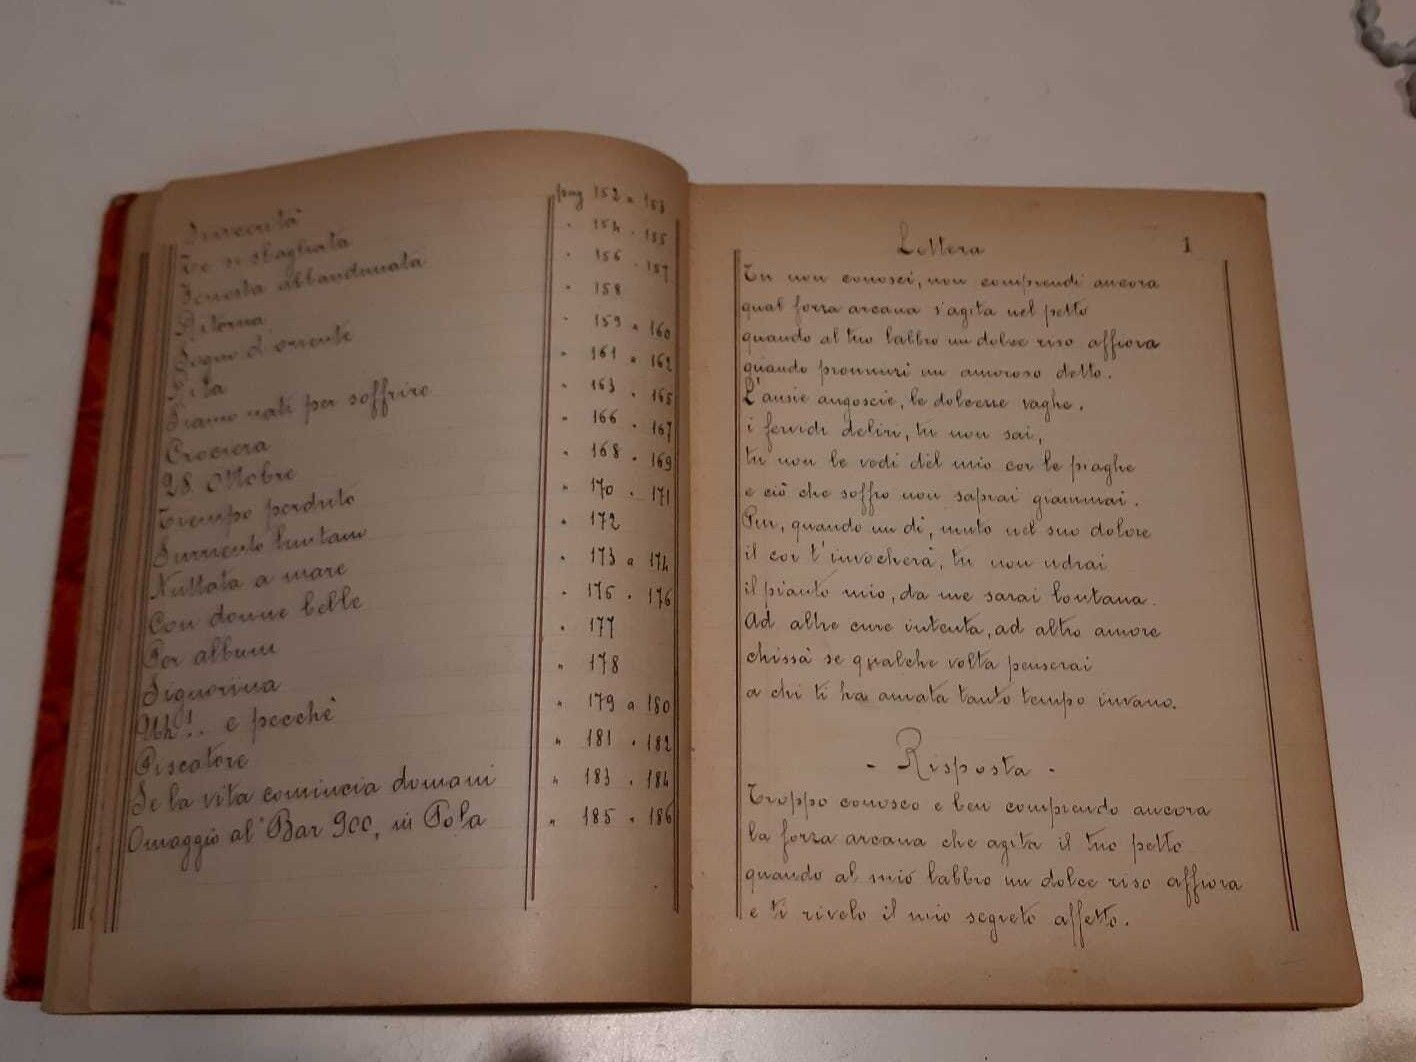 Sincerità pag 152 a 153
Te si sbagliata " 154 " 155
Fenesta abbandunata " 156 " 157
Ritorna " 158
Sogno d'oriente " 159 a 160
Gita " 161 a 162
Siamo nati per soffrire " 163 " 165
Crociera " 166 " 167
28. Ottobre " 168 " 169
Tiempo perduto " 170 " 171
Surriento luntano " 172
Nuttata a mare " 173 a 174
Con donne belle " 175 " 176
Per album " 177
Signorina " 178
Uh!.. e pecchè " 179 a 180
Piscatore " 181 " 182
Se la vita comincia domani " 183 " 184
Omaggio al "Bar 900, in Pola " 185 " 186
Lettera 1
Tu non conosci, non comprendi ancora
qual forza arcana s'agita nel petto
quando al tuo labbro un dolce riso affiora
quando pronunzi un amoroso detto.
L'ansie angoscie, le dolcezze vaghe.
i fervidi deliri, tu non sai,
tu non le vedi del mio cor le piaghe
e ciò che soffro non saprai giammai.
Pur, quando un dì, muto nel suo dolore
il cor t'invocherà, tu non udrai
il pianto mio, da me sarai lontana.
Ad altre cure intenta, ad altro amore
chissà se qualche volta penserai
a chi ti ha amata tanto tempo invano.
- Risposta -
Troppo conosco e ben comprendo ancora
la forza arcana che agita il tuo petto
quando al mio labbro un dolce riso affiora
e ti rivelo il mio segreto affetto.